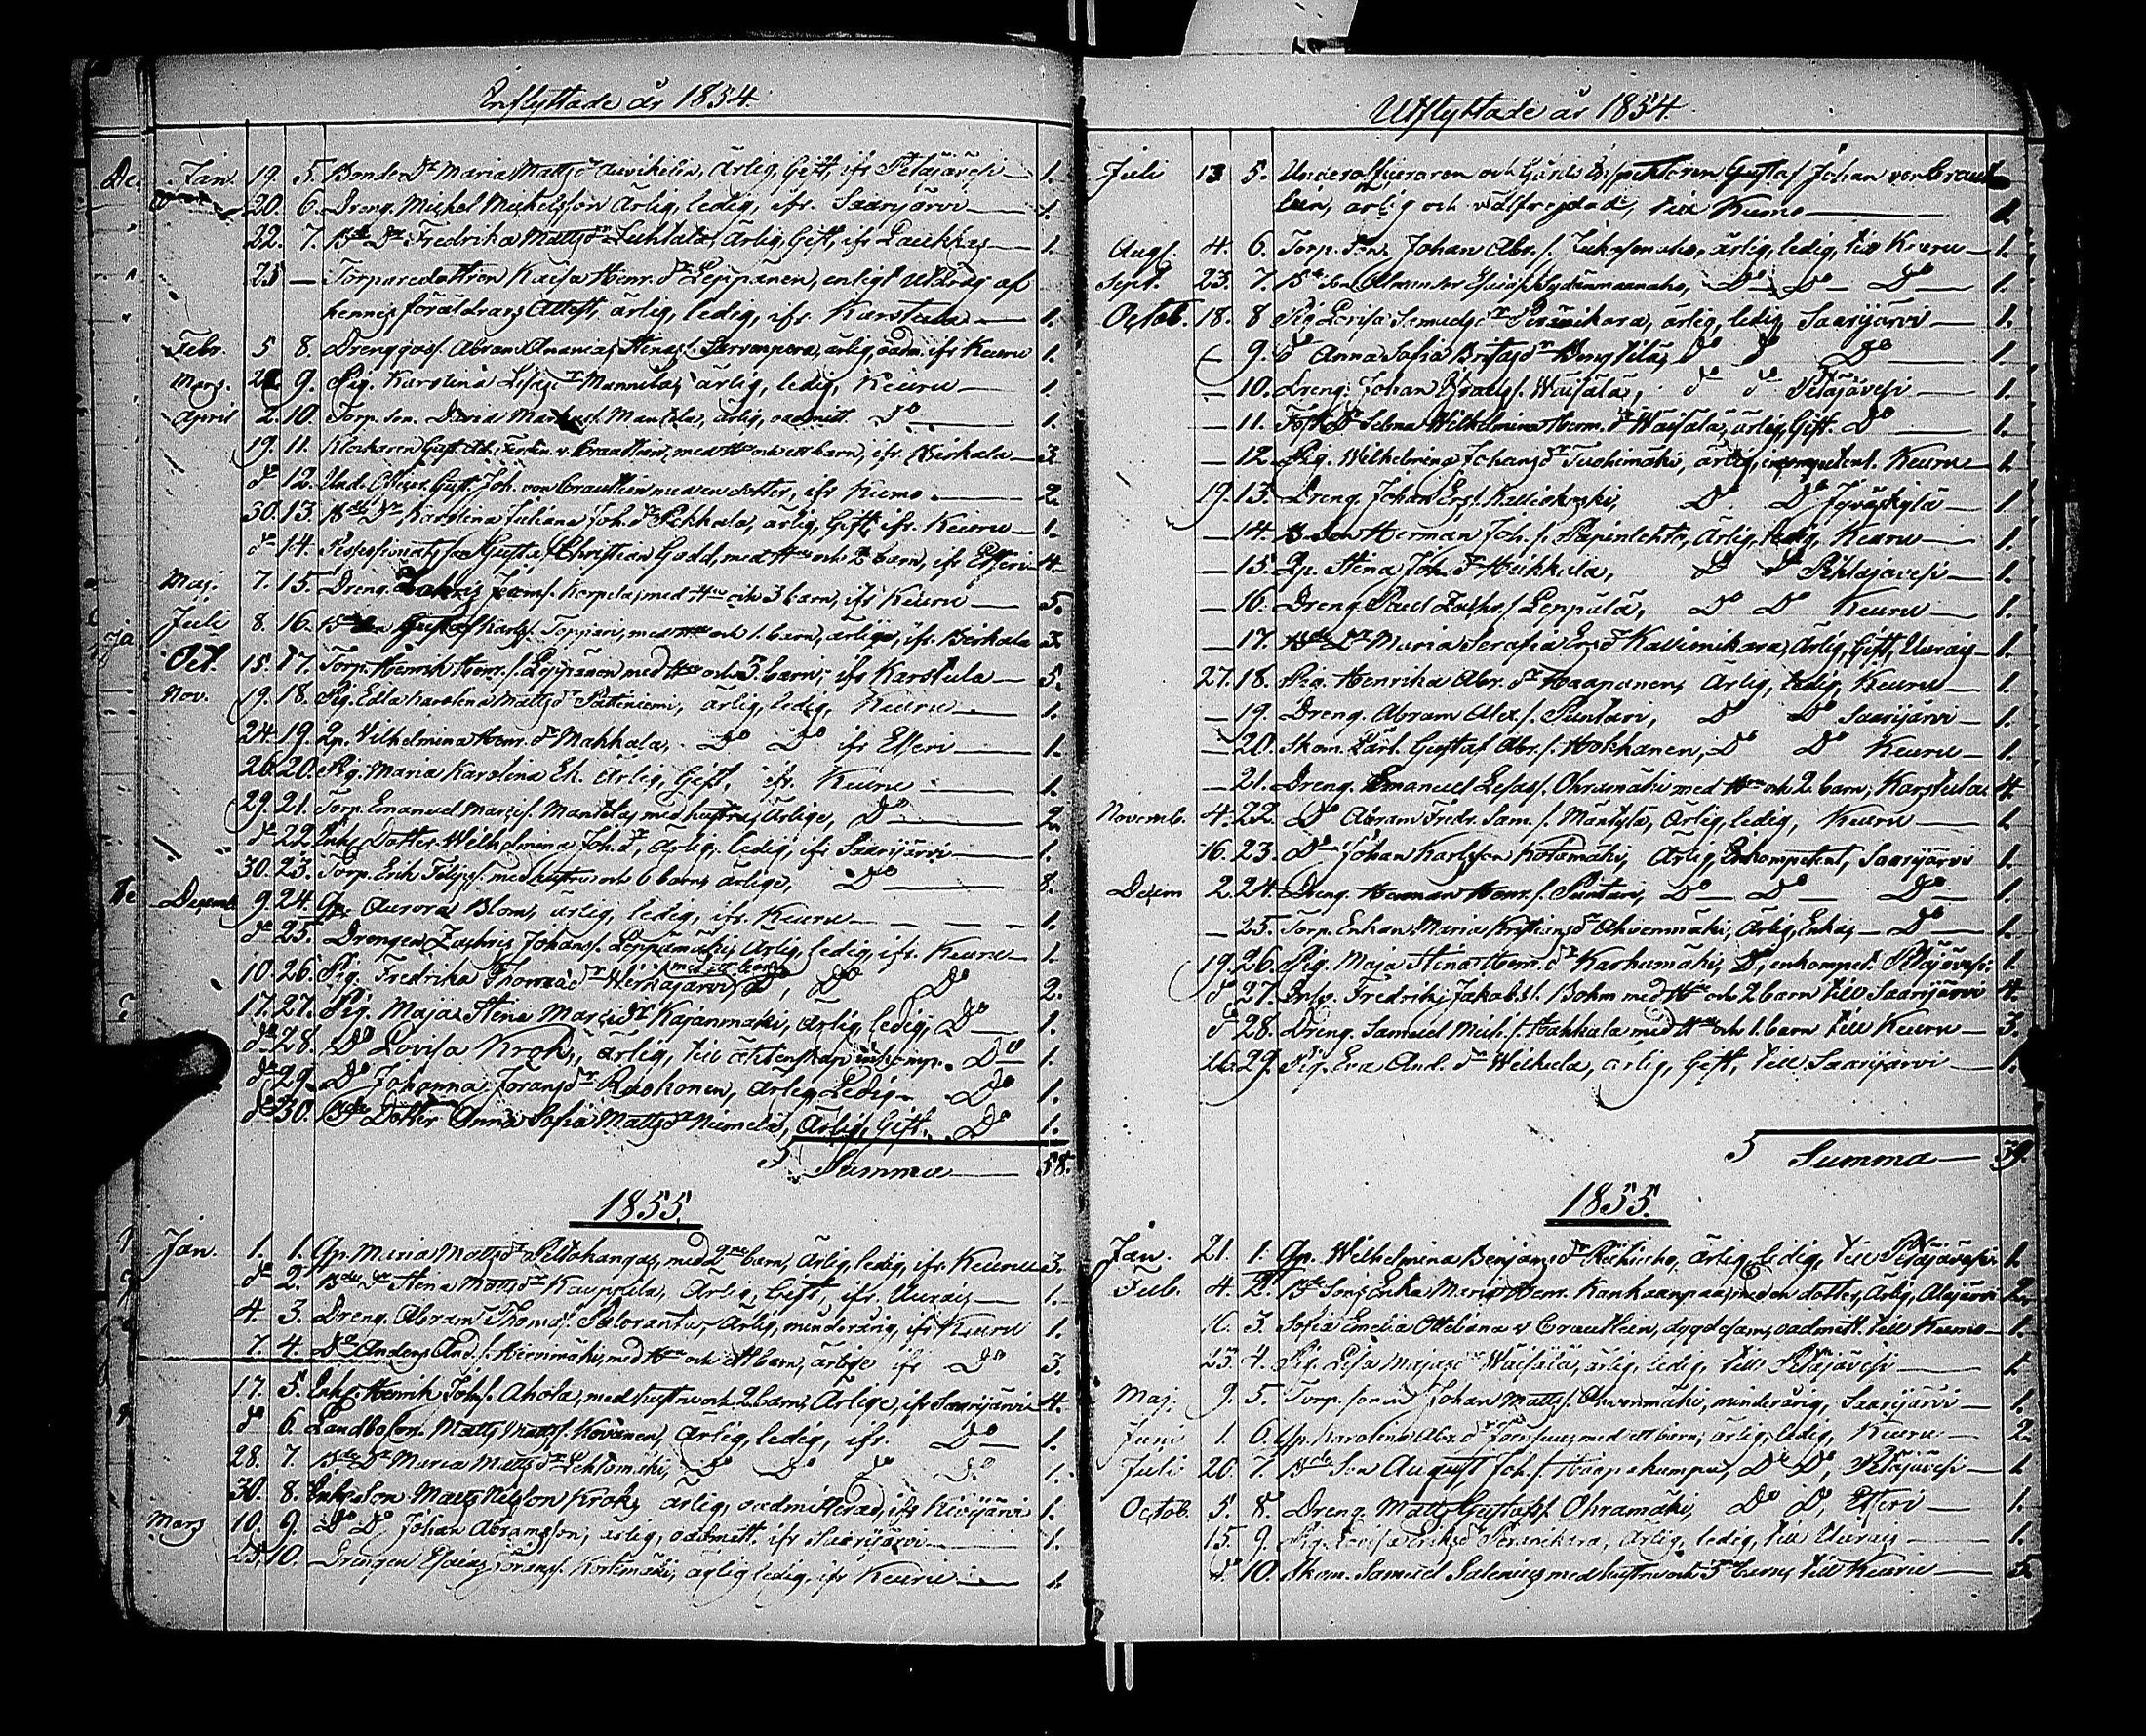 Inflyttade år 1854.
Jan. 19. 5. Bonde Dr Maria Mattsdr ärlig, Gift, ifr Petäjävesi 1.
20. 6. Dreng. Michel Michelsson ärlig, ledig, ifr. Saarijärvi 1.
22. 7. Bde Dr Fredrika Mattsdr Lehtola, ärlig, Gift, ifr Laukkas 1.
25 — Torparedottren Kaisa Henr. dr Leppänen, enligt Utdrag af
hennes föräldrars Attest, ärlig, ledig, ifr. Karstula 1.
Febr. 5 8. Abram Ananias ärlig, oadm. ifr Keuru 1.
Mars. 9. Pig. Karolina Esasdr Mannila, ärlig, ledig, Keuru 1.
April 2. 10. Torp. son. David Mantila, ärlig, oadmitt. Do 1.
19. 11. Klockaren Gust. Ad. Ferdin. v. med Hu och ett barn, ifr. Birkala 3.
do 12. Und. Offizer. Gust. Joh. von med en dotter, ifr Kumo 2.
30. 13. Bde Dr Karolina Juliana Joh. dr Pekkala, ärlig, Gift, ifr. Keuru 1.
do 14. Gustaf Christian Gadd, med Hu och 2 barn, ifr Etseri 4.
Maj. 7. 15. Dreng. Zakris Korpela, med Hu och 3 barn, ifr Keuru 5.
Juli 8. 16. Gustaf Karls. med och 1. barn, ärlige, ifr. Birkala 3.
Oct. 15. 17. Torp. Henrik Henr. s. Leppänen med Hu och 3 barn, ifr Karstula 5.
Nov. 19. 18. Pig. Edla Karolina Mattsdr ärlig, ledig, Keuru 1.
24. 19. Qp. Vilhelmina Henr. dr Mahkala, Do Do ifr Etseri 1.
26. 20. Pig. Maria Karolina Ek. ärlig, Gift, ifr. Keuru 1.
29. 21. Torp. Emanuel Mantila, med hustru, ärlige, Do 2.
do 22. Inh. Dotter. Wilhelmina Joh. dr, ärlig, ledig, ifr Saarijärvi 1.
30. 23. Torp. Erik med hustru och 6 barn, ärlige, Do 8.
Decemb. 9. 24. Qp. Aurora Blom, ärlig, ledig, ifr. Keuru 1.
do 25. Drengen Zachris Johans. Leppämäki, ärlig, ledig, ifr. Keuru 1.
10. 26. Pig. Fredrika Thomasdr med ett barn Do Do 2.
17. 27. Pig. Maja Stina Kajanmäki, ärlig, ledig, Do 1.
do 28. Do Lovisa Krok, ärlig, till äktenskap inkomp. Do 1.
do 29. Do Johanna Göransdr Ruokonen, ärlig, Ledig, Do 1.
do 30. Bde Dotter Anna Sofia Mattsdr Niemelä, ärlig, Gift. Do 1.
Summa 58.
1855.
Jan. 1. 1. Qp. Maria Mattsdr Peltokangas, med 2ne barn, ärlig, ledig, ifr. Keuru 3.
do 2. Bde Dr Stena Mattsdr Kauppila, ärlig, Gift, ifr. Uurais 1.
4. 3. Dreng. Abram Thomas. Paloranta, ärlig, minderårig, ifr Keuru 1.
7. 4. Do Anders And. s. med Hu och ett barn, ärlige ifr Do 3.
17. 5. Inh. Henrik Joh. s. Ahola, med hustru och 2 barn, ärlige, ifr Saarijärvi 4.
do 6. Landboson. Matts Matts. Kovanen, ärlig, ledig, ifr. Do 1.
28. 7. Bde Dr Maria Mattsdr Lehtomäki, Do Do Do Do 1.
30. 8. Inh. son Matts Nilsson Krok, ärlig, oadmitterad, ifr Kivijärvi 1.
Mars 10. 9. Do Do Johan Abramsson, ärlig, oadmitt. ifr Saarijärvi 1.
25. 10. Drengen Esaias Frans. Kortemäki, ärlig, ledig, ifr Keuru 1.
Utflyttade år 1854.
Juli 13 5. Underofficeraren och Gårds Inspektoren Gustaf Johan von
ärlig och välfrejdad, till Kumo 1.
Aug. 4. 6. Torp. Son. Johan Abr. s. ärlig, ledig, till Keuru 1.
Sept. 23. 7. Bde Son Sydänmaanaho, Do Do Do 1.
Octob. 18. 8 Pig Lovisa Samuelsdr Peränikara, ärlig, ledig, Saarijärvi 1.
— 9. Do Anna Sofia Britasdr Do Do Do 1.
— 10. Dreng. Johan Waisala, do do Petäjävesi 1.
— 11. Selma Wilhelmina Herm. dr Waisala, ärlig, Gift. Do 1.
— 12. Pig. Wilhelmina Johansdr Tuohimäki, ärlig, inkompetent. Keuru 1.
19. 13. Dreng. Johan Ers. Kalliokoski, Do Do Jyväskylä 1.
— 14. B. son Herman Joh. s. Papinlehto, ärlig, ledig, Keuru 1.
— 15. Qp. Stina Joh. dr Heikkila, Do Do Petäjävesi 1.
— 16. Dreng. Paul Zachr. s. Leppälä, Do Do Keuru 1.
— 17. Bde Dr Maria Serafia Ersdr ärlig, Gift, Uurais 1.
27. 18. Pig. Henrika Abr. dr Haapanen, ärlig, ledig, Keuru 1.
— 19. Dreng. Abram Alex. s. Puntari, Do Do Saarijärvi 1.
— 20. Skom. Lärl. Gustaf Abr. s. Hokkanen, Do Do Keuru 1.
— 21. Dreng. Emanuel Esas. Ohramäki med Hu och 2. barn, Karstula 4.
Novemb. 4. 22. Do Abram Fredr. Sam. s. Mäntylä, ärlig, ledig, Keuru 1.
16. 23. Do Johan Karlsson Kotamäki, ärlig, Inkompetent, Saarijärvi 1.
Decem 2. 24. Dreng. Herman Henr. s. Puntari, Do Do Do 1.
— 25. Torp. Enkan Maria Kristiansdr Ahvenmäki, ärlig, Enka, Do 1.
19. 26. Pig. Maja Stina Herm. dr Karhumäki, Do, inkompet. Petäjävesi 1.
do 27. Inh. Fredrik Jakobs. Bohm med Hu och 2 barn till Saarijärvi 4.
do 28. Dreng. Samuel Mich. s. Hakkala med Hu och 1. barn till Keuru 3.
26. 29. Pig. Eva And. dr Weikula, ärlig, Gift, till Saarijärvi 1.
Summa 39.
1855.
Jan. 21. 1. Qp. Wilhelmina Benjamsdr ärlig, ledig, till Petäjävesi 1.
Feb. 4. 2. Bde Sons Enka Maria Henr. Kankaanpää, med en dotter, ärlig, Alajärvi 2.
16. 3. Sofia Emelia Otteliana v dygdesam, oadmitt. till Kumo 1.
25. 4. Pig. Lisa Majasdr Waisala, ärlig, ledig, till Petäjävesi 1.
Maj. 9. 5. Torp. son Johan Matts. Ahvenmäki, minderårig, Saarijärvi 1.
Juni 1. 6. Qp. Karolina Abr. dr med ett barn, ärlig, ledig, Keuru 2.
Juli 26. 7. Bde Son August Joh. s. Haapakumpu, Do Do, Petäjävesi 1.
Octob. 5. 8. Dreng. Matts Gustafs. Ohramäki, Do Do, Etseri 1.
15. 9. Pig. Lovisa Eriksdr Peränikara, ärlig, ledig, till Uurais 1.
do 10. Skom. Samuel Salenius med hustru och 3 barn, till Keuru 5.